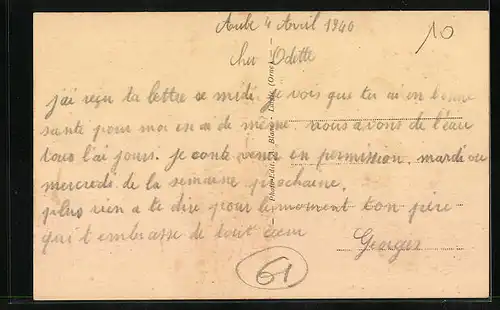 Aube 4 Avril 1940
10
cher Odette
j'ai reçu ta lettre ce midi je vois que tu ai en bonne
sante pour moi en ai de même. nous avons de l'eau
tous l'ai jours. je conte venir en permission, mardi ou
mercredi de la semaine prochaine,
plus rien a te dire pour le moment ton père
qui t embrasse de tout cœur
Georges
61